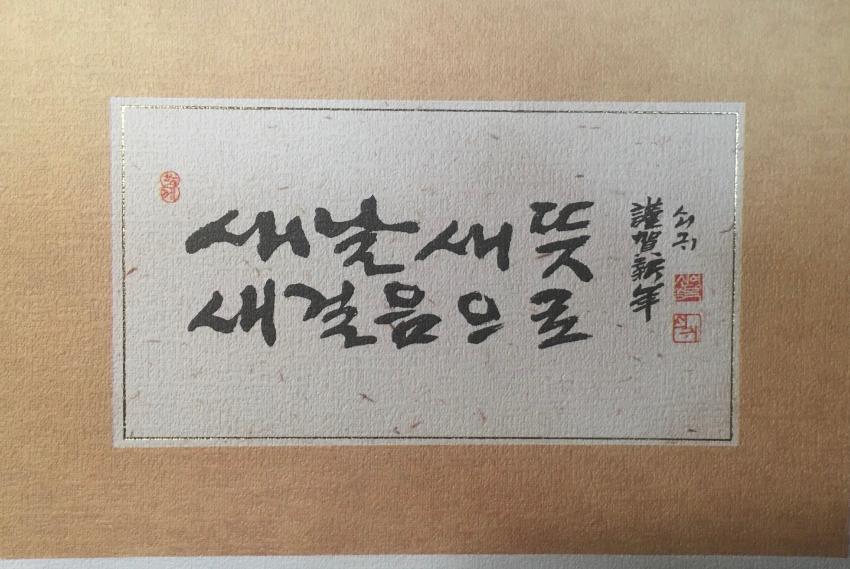 새날 새뜻
새걸음으로
謹賀新年
쇠귀